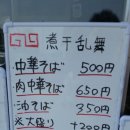 煮干乱舞
中華そば 500円
肉中華そば 650円
油そば 350円
大盛り +200円